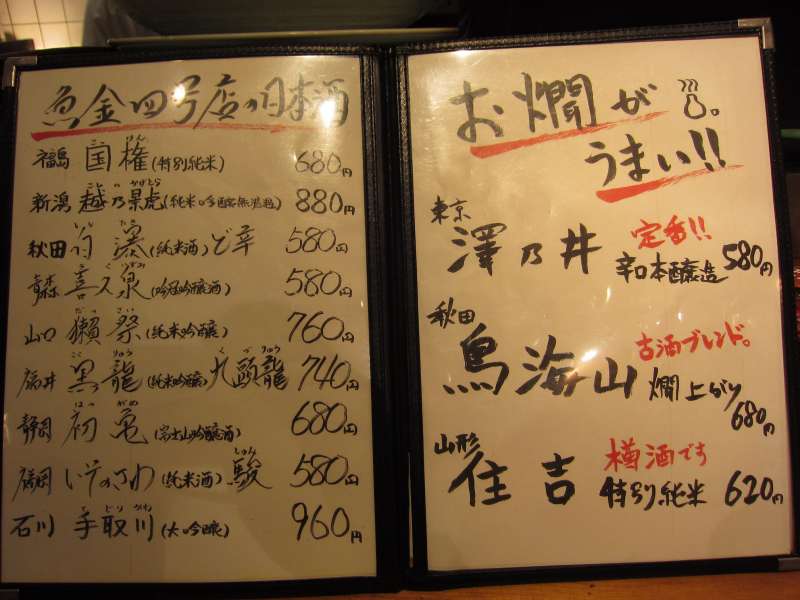 魚金四号店の日本酒
福島 国権(特別純米) 680円
新潟 越乃景虎(純米吟醸無濾過) 880円
秋田 (純米酒)ど辛 580円
青森 喜久泉(吟冠吟醸酒) 580円
山口 獺祭(純米吟醸) 760円
福井 黒龍(純米吟醸)九頭龍 740円
静岡 初亀(富士山吟醸酒) 680円
福岡 いそのさわ(純米酒)駿 580円
石川 手取川(大吟醸) 960円
お燗が
うまい!!
東京
澤乃井 定番!!
辛口本醸造 580円
秋田
鳥海山 古酒ブレンド。
燗上がり
680円
山形
住吉 樽酒です
特別純米 620円